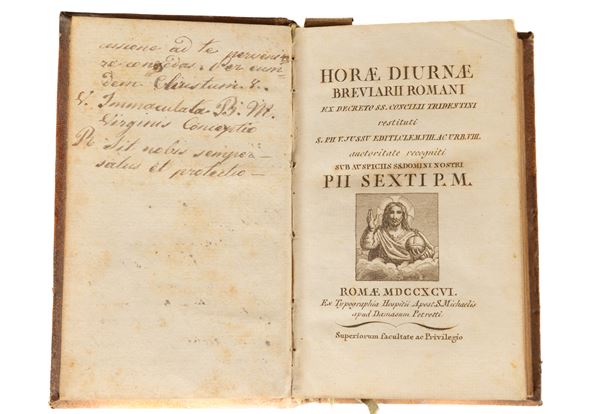 ad te perveni=
Per eun=
dem Christum. &.
V. Immaculata B. M.
Virginis Conceptio
R. Sit nobis semper
salus et protectio—
HORÆ DIURNÆ
BREVIARII ROMANI
EX DECRETO SS. CONCILII TRIDENTINI
restituti
S. PII V. JUSSU EDITI CLEM. VIII. AC URB. VIII.
auctoritate recogniti
SUB AUSPICIIS SS. DOMINI NOSTRI
PII SEXTI P. M.
ROMÆ MDCCXCVI.
Ex Typographia Hospitii Apost. S. Michaelis
apud Damasum Petretti.
Superiorum facultate ac Privilegio